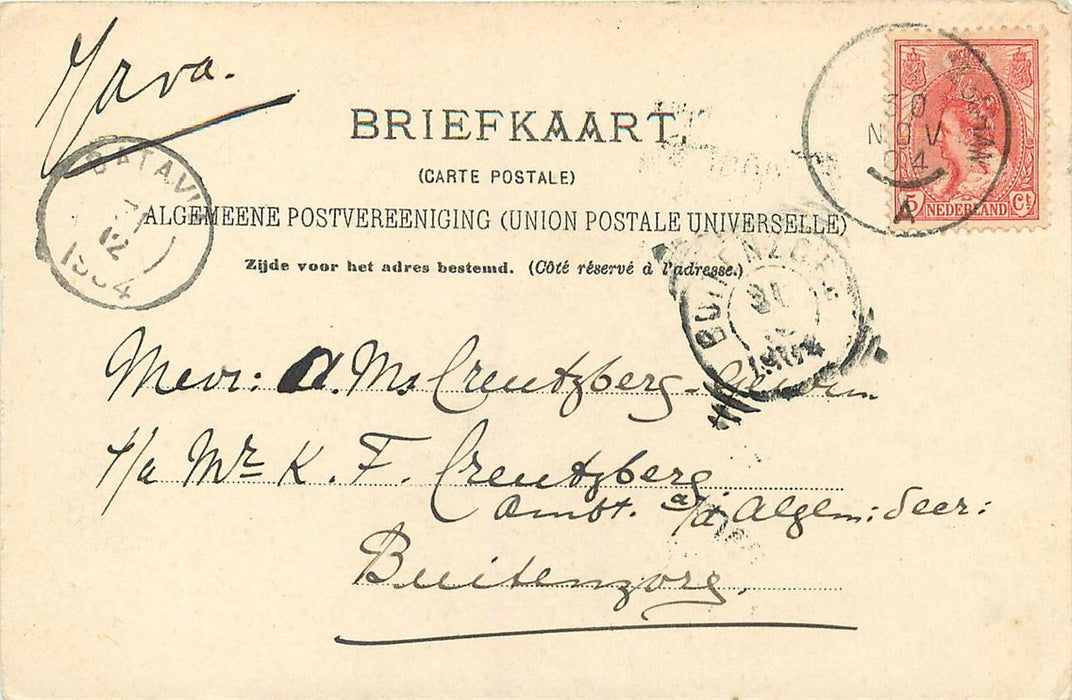 Java.
BRIEFKAART.
(CARTE POSTALE)
ALGEMEENE POSTVEREENIGING (UNION POSTALE UNIVERSELLE)
Zijde voor het adres bestemd. (Côté réservé à l'adresse.)
30
NOV
04
A
5 NEDERLAND Ct
BATAVI
12
1904
BUITENZORG
31
Mevr: A. M. Creutzberg-
t/a Mr K. F. Creutzberg
Ambt. a/d Algem: Secr:
Buitenzorg.